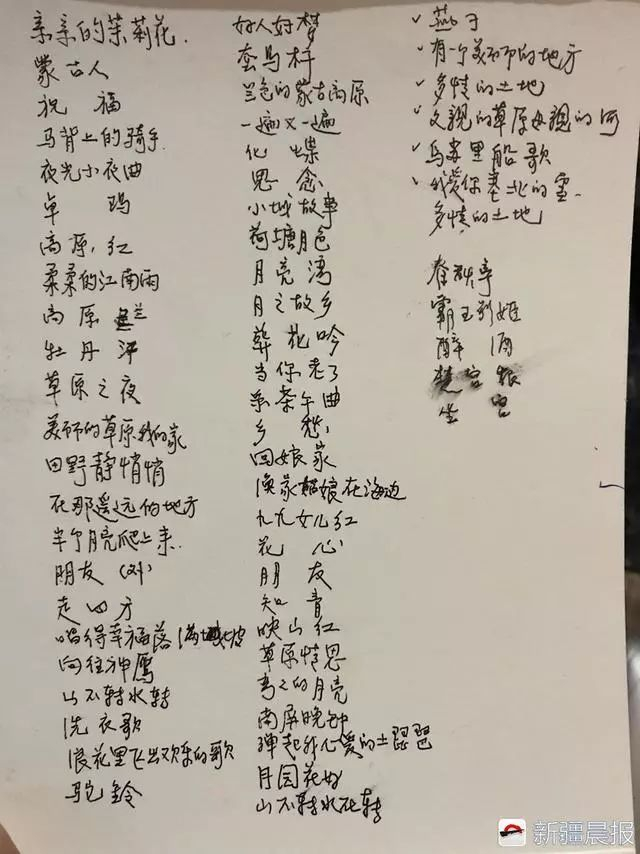 亲亲的茉莉花.
蒙古人
祝福
马背上的骑手
夜光小夜曲
卓玛
高原红
柔柔的江南雨
高原兰
牡丹江
草原之夜
美丽的草原我的家
田野静悄悄
在那遥远的地方
半个月亮爬上来.
朋友(刘)
走四方
唱得幸福落满坡
向往神鹰
山不转水转
洗衣歌
浪花里飞出欢乐的歌
驼铃
好人好梦
套马杆
兰色的蒙古高原
一遍又一遍
化蝶
思念
小城故事
荷塘月色
月亮湾
月之故乡
葬花吟
当你老了
采茶午曲
乡愁
回娘家
渔家姑娘在海边
九九女儿红
花心
朋友
知青
映山红
草原情思
弯弯的月亮
南屏晚钟
弹起我心爱的土琵琶
月园花好
山不转水在转
燕子
有一个美丽的地方
多情的土地
父親的草原母親的河
乌苏里船歌
我爱你塞北的雪.
多情的土地
春秋亭
霸王别姬
醉酒
坐宫
新疆晨报